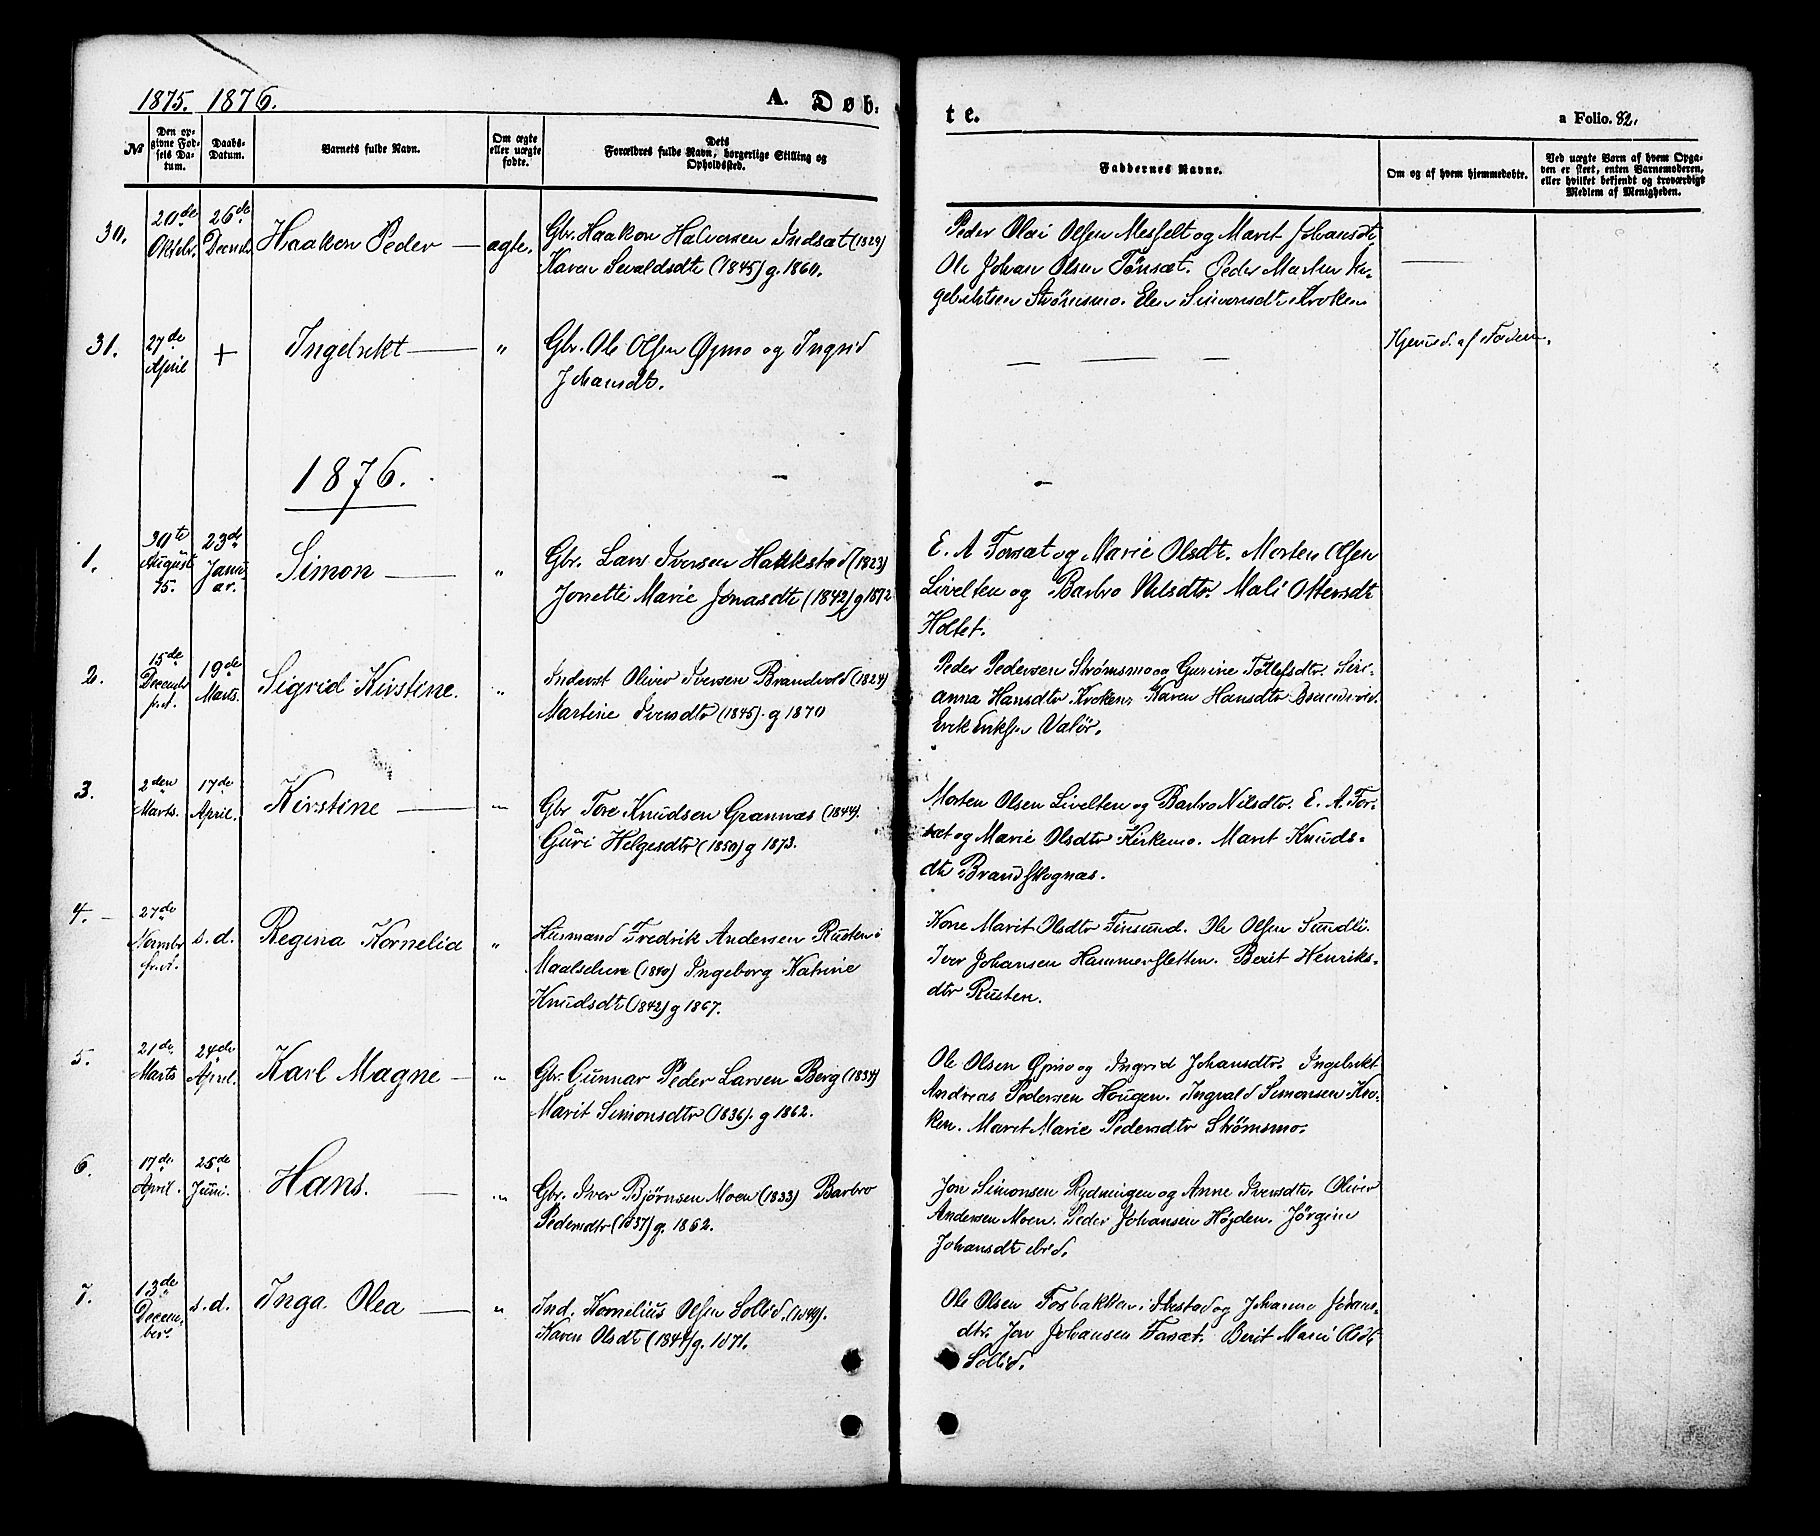 1875. 1876.
A. Døb-
te.
a Folio. 82.
No
Den op-
givne Fød-
sels Da-
tum.
Daabs-
Datum.
Barnets fulde Navn.
Om ægte
eller uægte
fødte.
Dets
Forældres fulde Navn, borgerlige Stilling og
Opholdssted.
Faddernes Navne.
Om og af hvem hjemmedøbte.
Ved uægte Børn af hvem Opga-
ven er skeet, enten Barnemoderen,
eller hvilket bekjendt og troværdigt
Medlem af Menigheden.
30.
20de
Oktobr.
26de
Decmb.
Haakon Peder
ægte.
Gbr. Haakon Halvorsen Indsæt (1829)
Karen Sevaldsdtr (1845) g. 1860.
Peder Olai Olsen Mesfelt og Maret Johansdtr
Ole Johan Olsen Tønsæt. Peder Martin In-
gebrktsen Strømsmo. Elen Simonsdtr Kroken.
31.
27de
April
+
Ingebrkt
"
Gbr. Ole Olsen Øpmo og Ingrid
Johansdtr.
Hjemmed. af Faderen.
1876.
1.
30te
August
75.
23de
Janu-
ar.
Simon
"
Gbr. Lars Iversen Hakkstad (1823)
Jonette Marie Jonasdtr (1842) g 1872
E. A Forsæt og Marie Olsdtr. Morten Olsen
Livelten og Barbro Nilsdtr. Mali Ottersdtr
Holtet.
2.
15de
Decembr
f.A.
19de
Marts.
Sigrid Kirstine.
"
Inderst Oliver Iversen Brandvold (1824)
Martine Iversdtr (1845). g 1870
Peder Pedersen Strømsmo og Gurine Tollefsdtr. Seri-
anna Hansdtr Kroken. Karen Hansdtr
Erik Eriksen Valør.
3.
2den
Marts.
17de
April.
Kirstine
"
Gbr Tore Knudsen Grannæs (1844).
Guri Helgesdtr (1850) g 1873.
Morten Olsen Livelten og Barbro Nilsdtr. E. A. For-
sæt og Marie Olsdtr Kirkemo. Marit Knuds-
dtr Brandskognæs.
4.
27de
Novmbr
f.A.
s.d.
Regina Kornelia
"
Husmand Fredrik Andersen Rusten i
Maalselven (1840) Ingeborg Katrine
Knudsdtr (1842) g 1867.
Kone Marit Olsdtr Finsund. Ole Olsen Sundli.
Iver Johansen Hammersletten. Berit Henriks-
dtr Rusten.
5.
21de
Marts
24de
April.
Karl Magne
"
Gbr. Gunnar Peder Larsen Berg (1834)
Marit Simonsdtr (1836). g 1862.
Ole Olsen Øpmo og Ingrid Johansdtr. Ingebrkt
Andreas Pedersen Haugen. Ingvald Simonsen Kro-
ken. Maret Marie Pedersdtr Strømsmo.
6.
17de
April.
25de
Juni.
Hans.
"
Gbr. Iver Bjørnsen Moen (1833) Barbro
Pedersdtr (1837) g. 1862.
Jon Simonsen Rydningen og Anne Iversdtr. Oliver
Andersen Moen. Peder Johansen Høgden. Jørgine
Johansdtr ibid.
7.
13de
Decem-
ber.
s.d.
Inga Olea
"
Ind. Kornelius Olsen Sollid. (1849).
Karen Olsdtr (1844) g. 1871.
Ole Olsen Fosbakken i Ibestad og Johanna Johans-
dtr. Jon Johansen Forsæt. Berit Marie Olsdtr
Sollid.